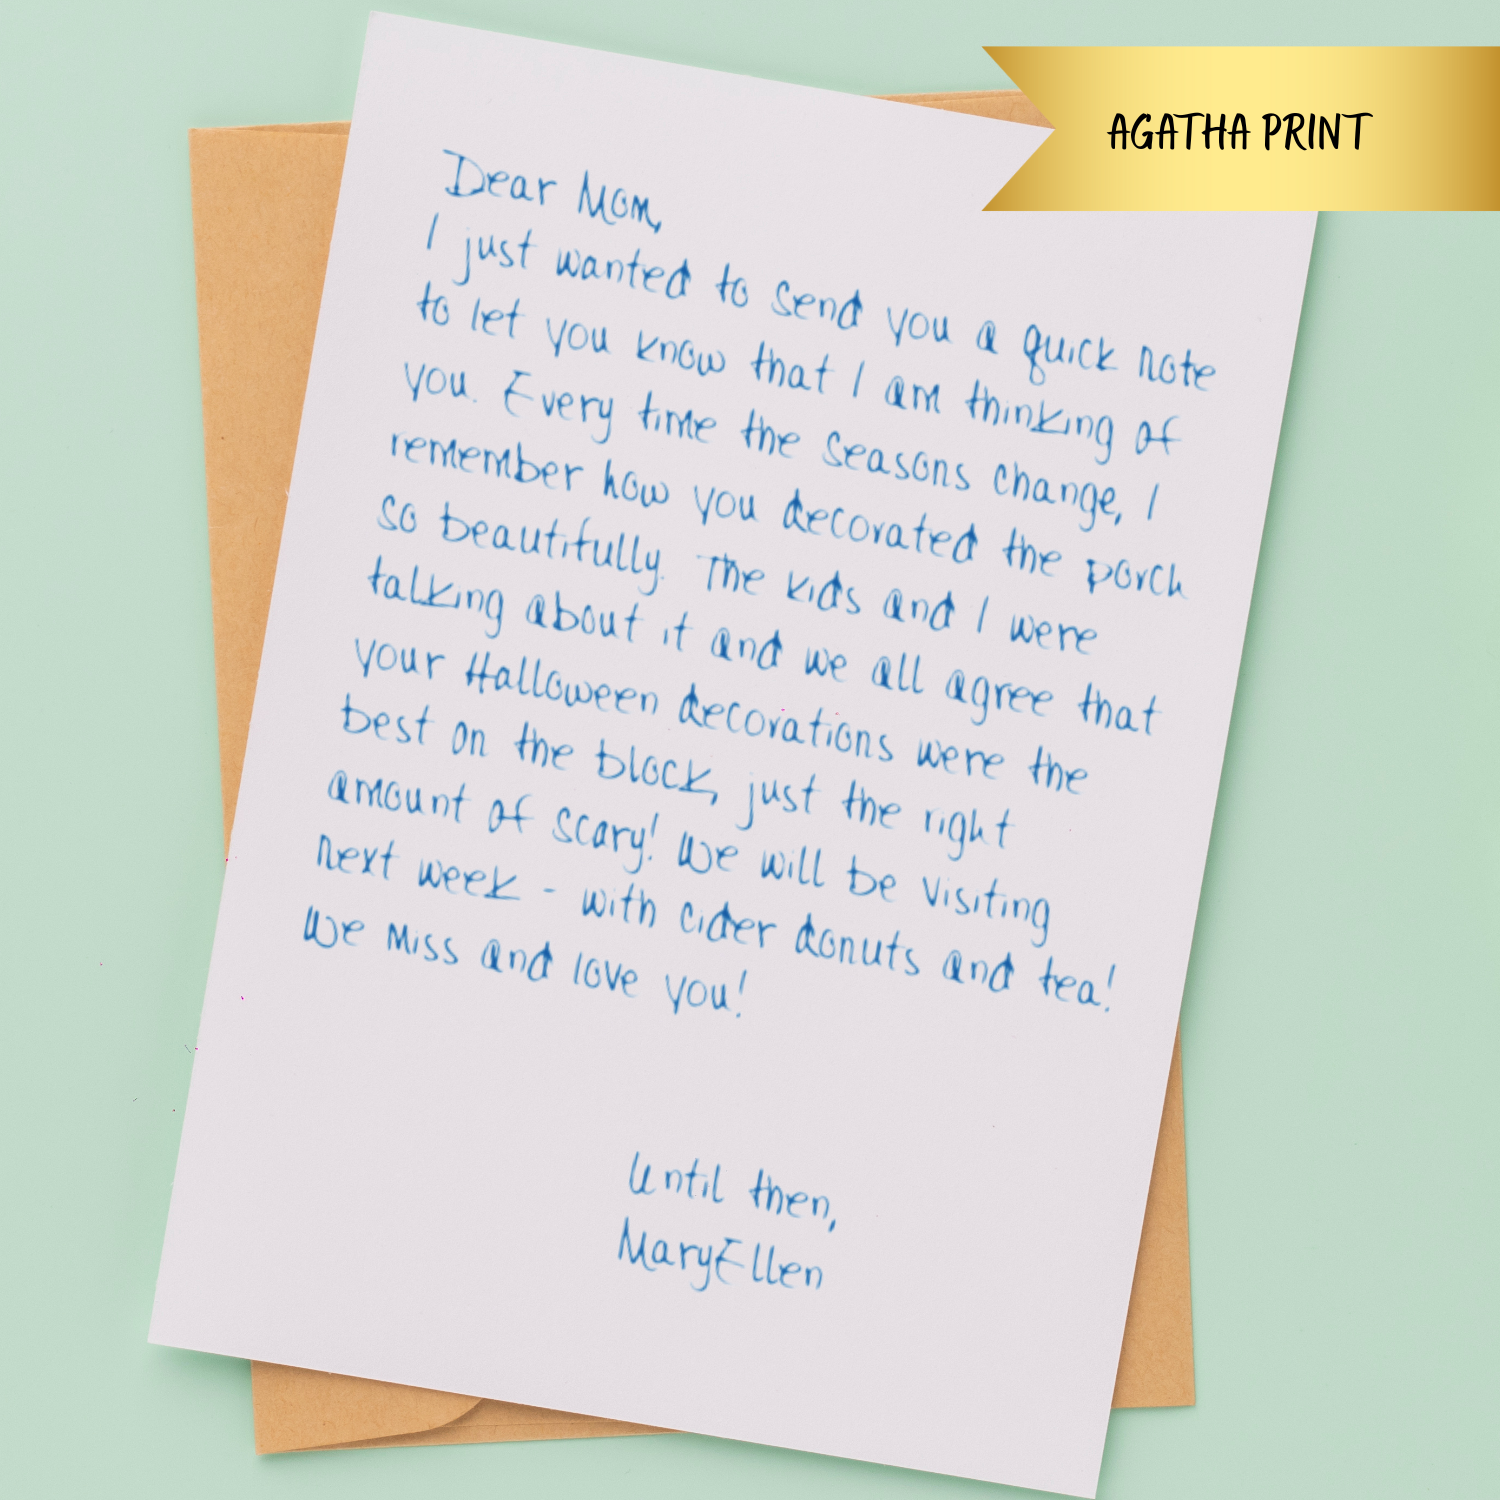 AGATHA PRINT
Dear Mom,
I just wanted to send you a quick note
to let you know that I am thinking of
you. Every time the seasons change, I
remember how you decorated the porch
so beautifully. The kids and I were
talking about it and we all agree that
your Halloween decorations were the
best on the block, just the right
amount of scary! We will be visiting
next week - with cider donuts and tea!
We miss and love you!
Until then,
MaryEllen